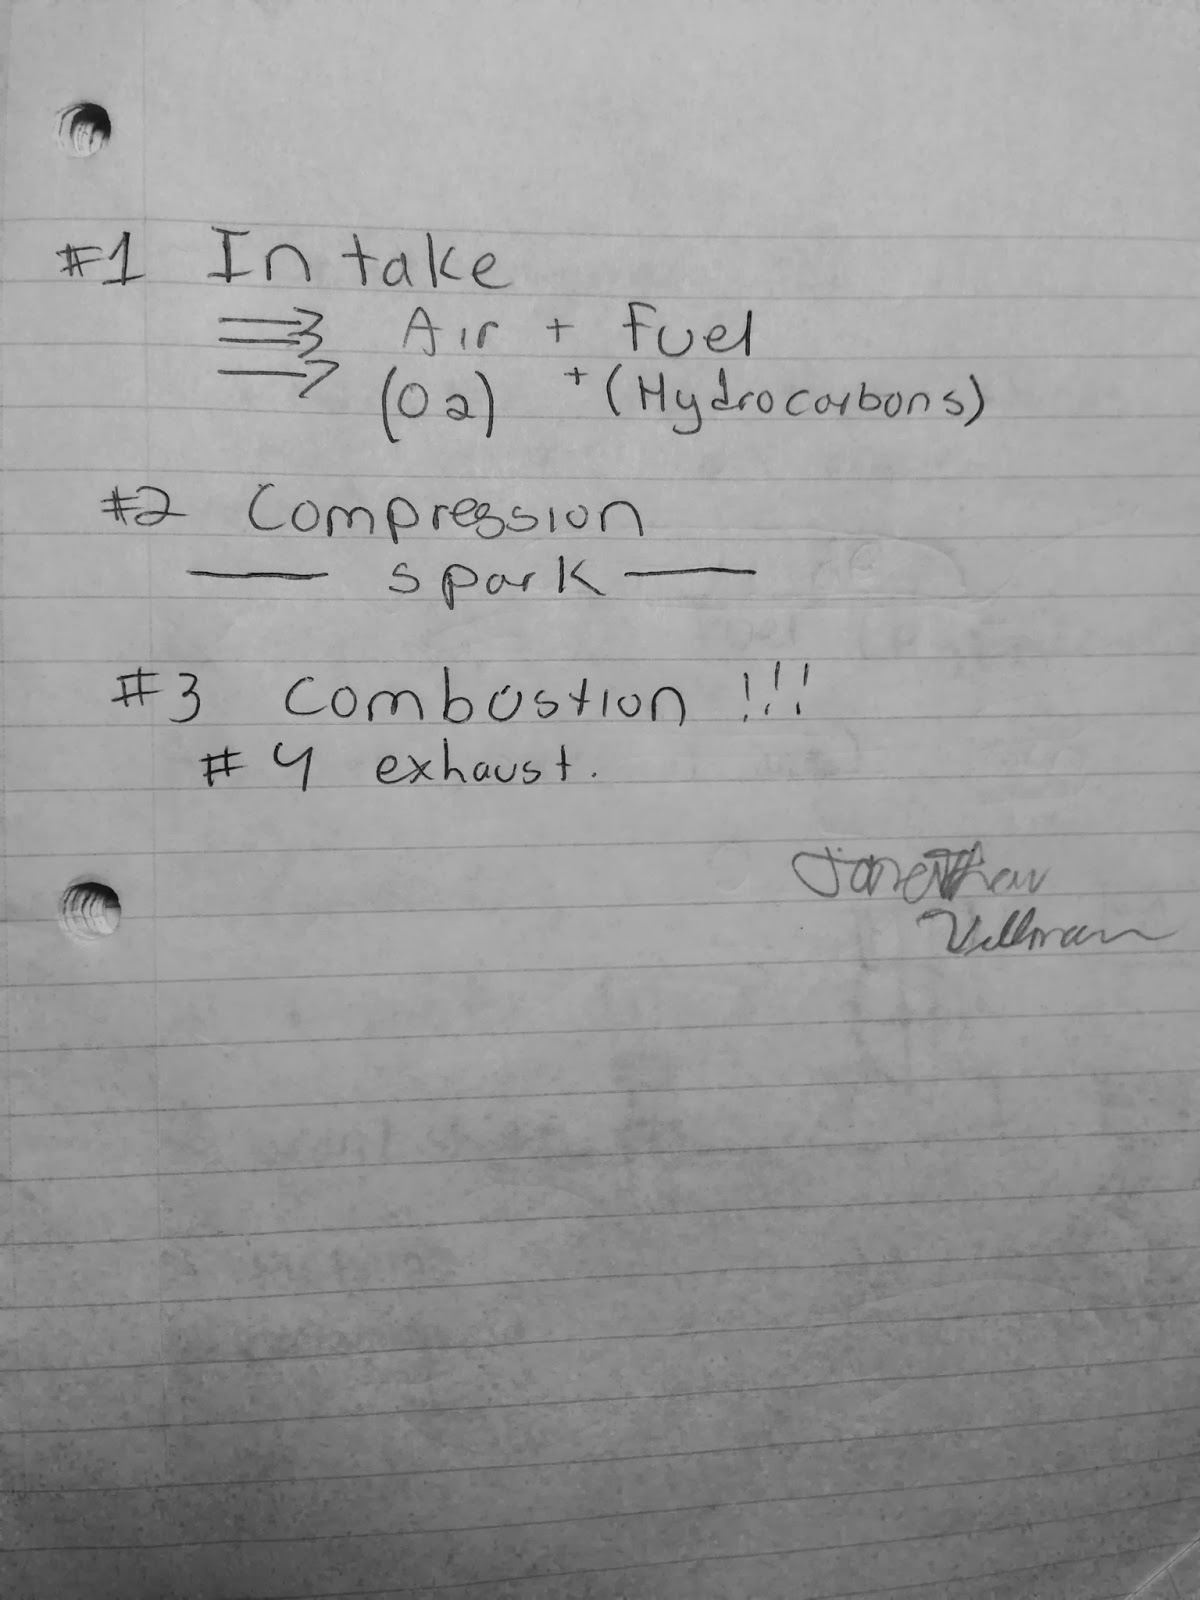 #1 Intake
⇒ Air + Fuel
→ (O2) + (Hydrocarbons)
#2 Compression
— spark —
#3 Combustion !!!
#4 exhaust.
Jonathan